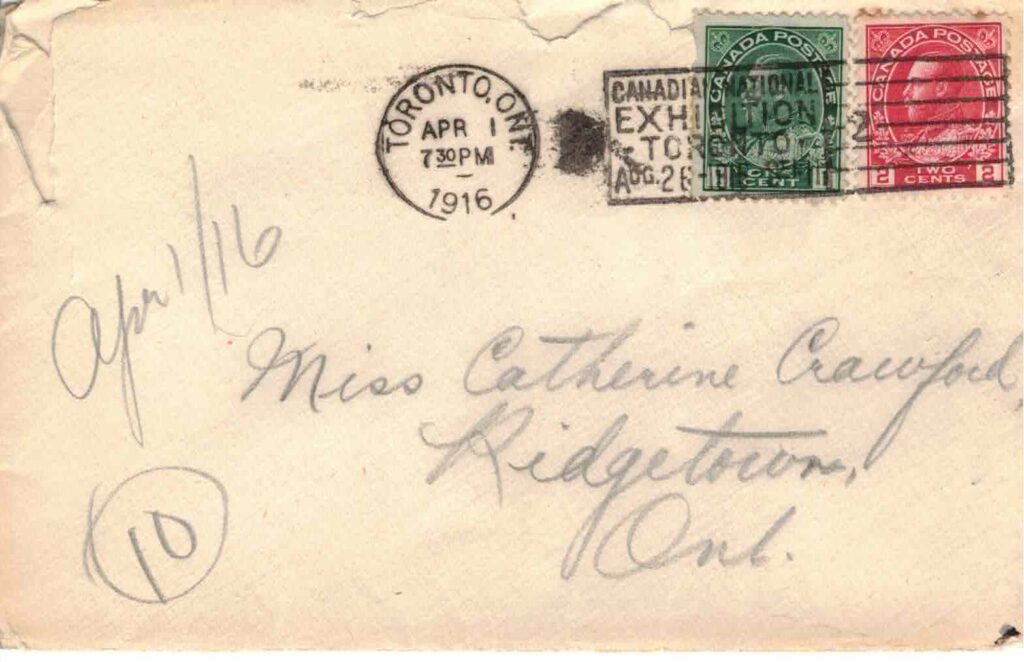 TORONTO, ONT
APR 1
7 30 PM
1916
CANADIAN NATIONAL
EXHIBITION
TORONTO
AUG. 26
CANADA POSTAGE
1
ONE
CENT
CANADA POSTAGE
2 TWO 2
CENTS
Apr 1/16
Miss Catherine Crawford,
Ridgetown,
Ont.
10